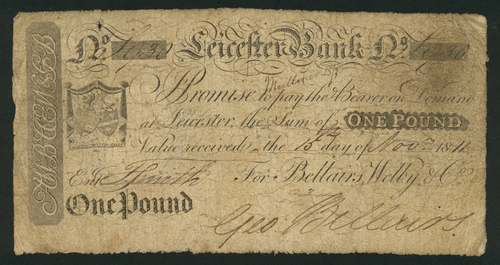 No. Leicester Bank No.
I Promise to pay the Bearer on Demand
at Leicester, the Sum of ONE POUND
Value received the 15 day of Novr. 1811
For Bellairs, Welby, & Co.
Entd. Smith
One Pound
Geo Bellairs